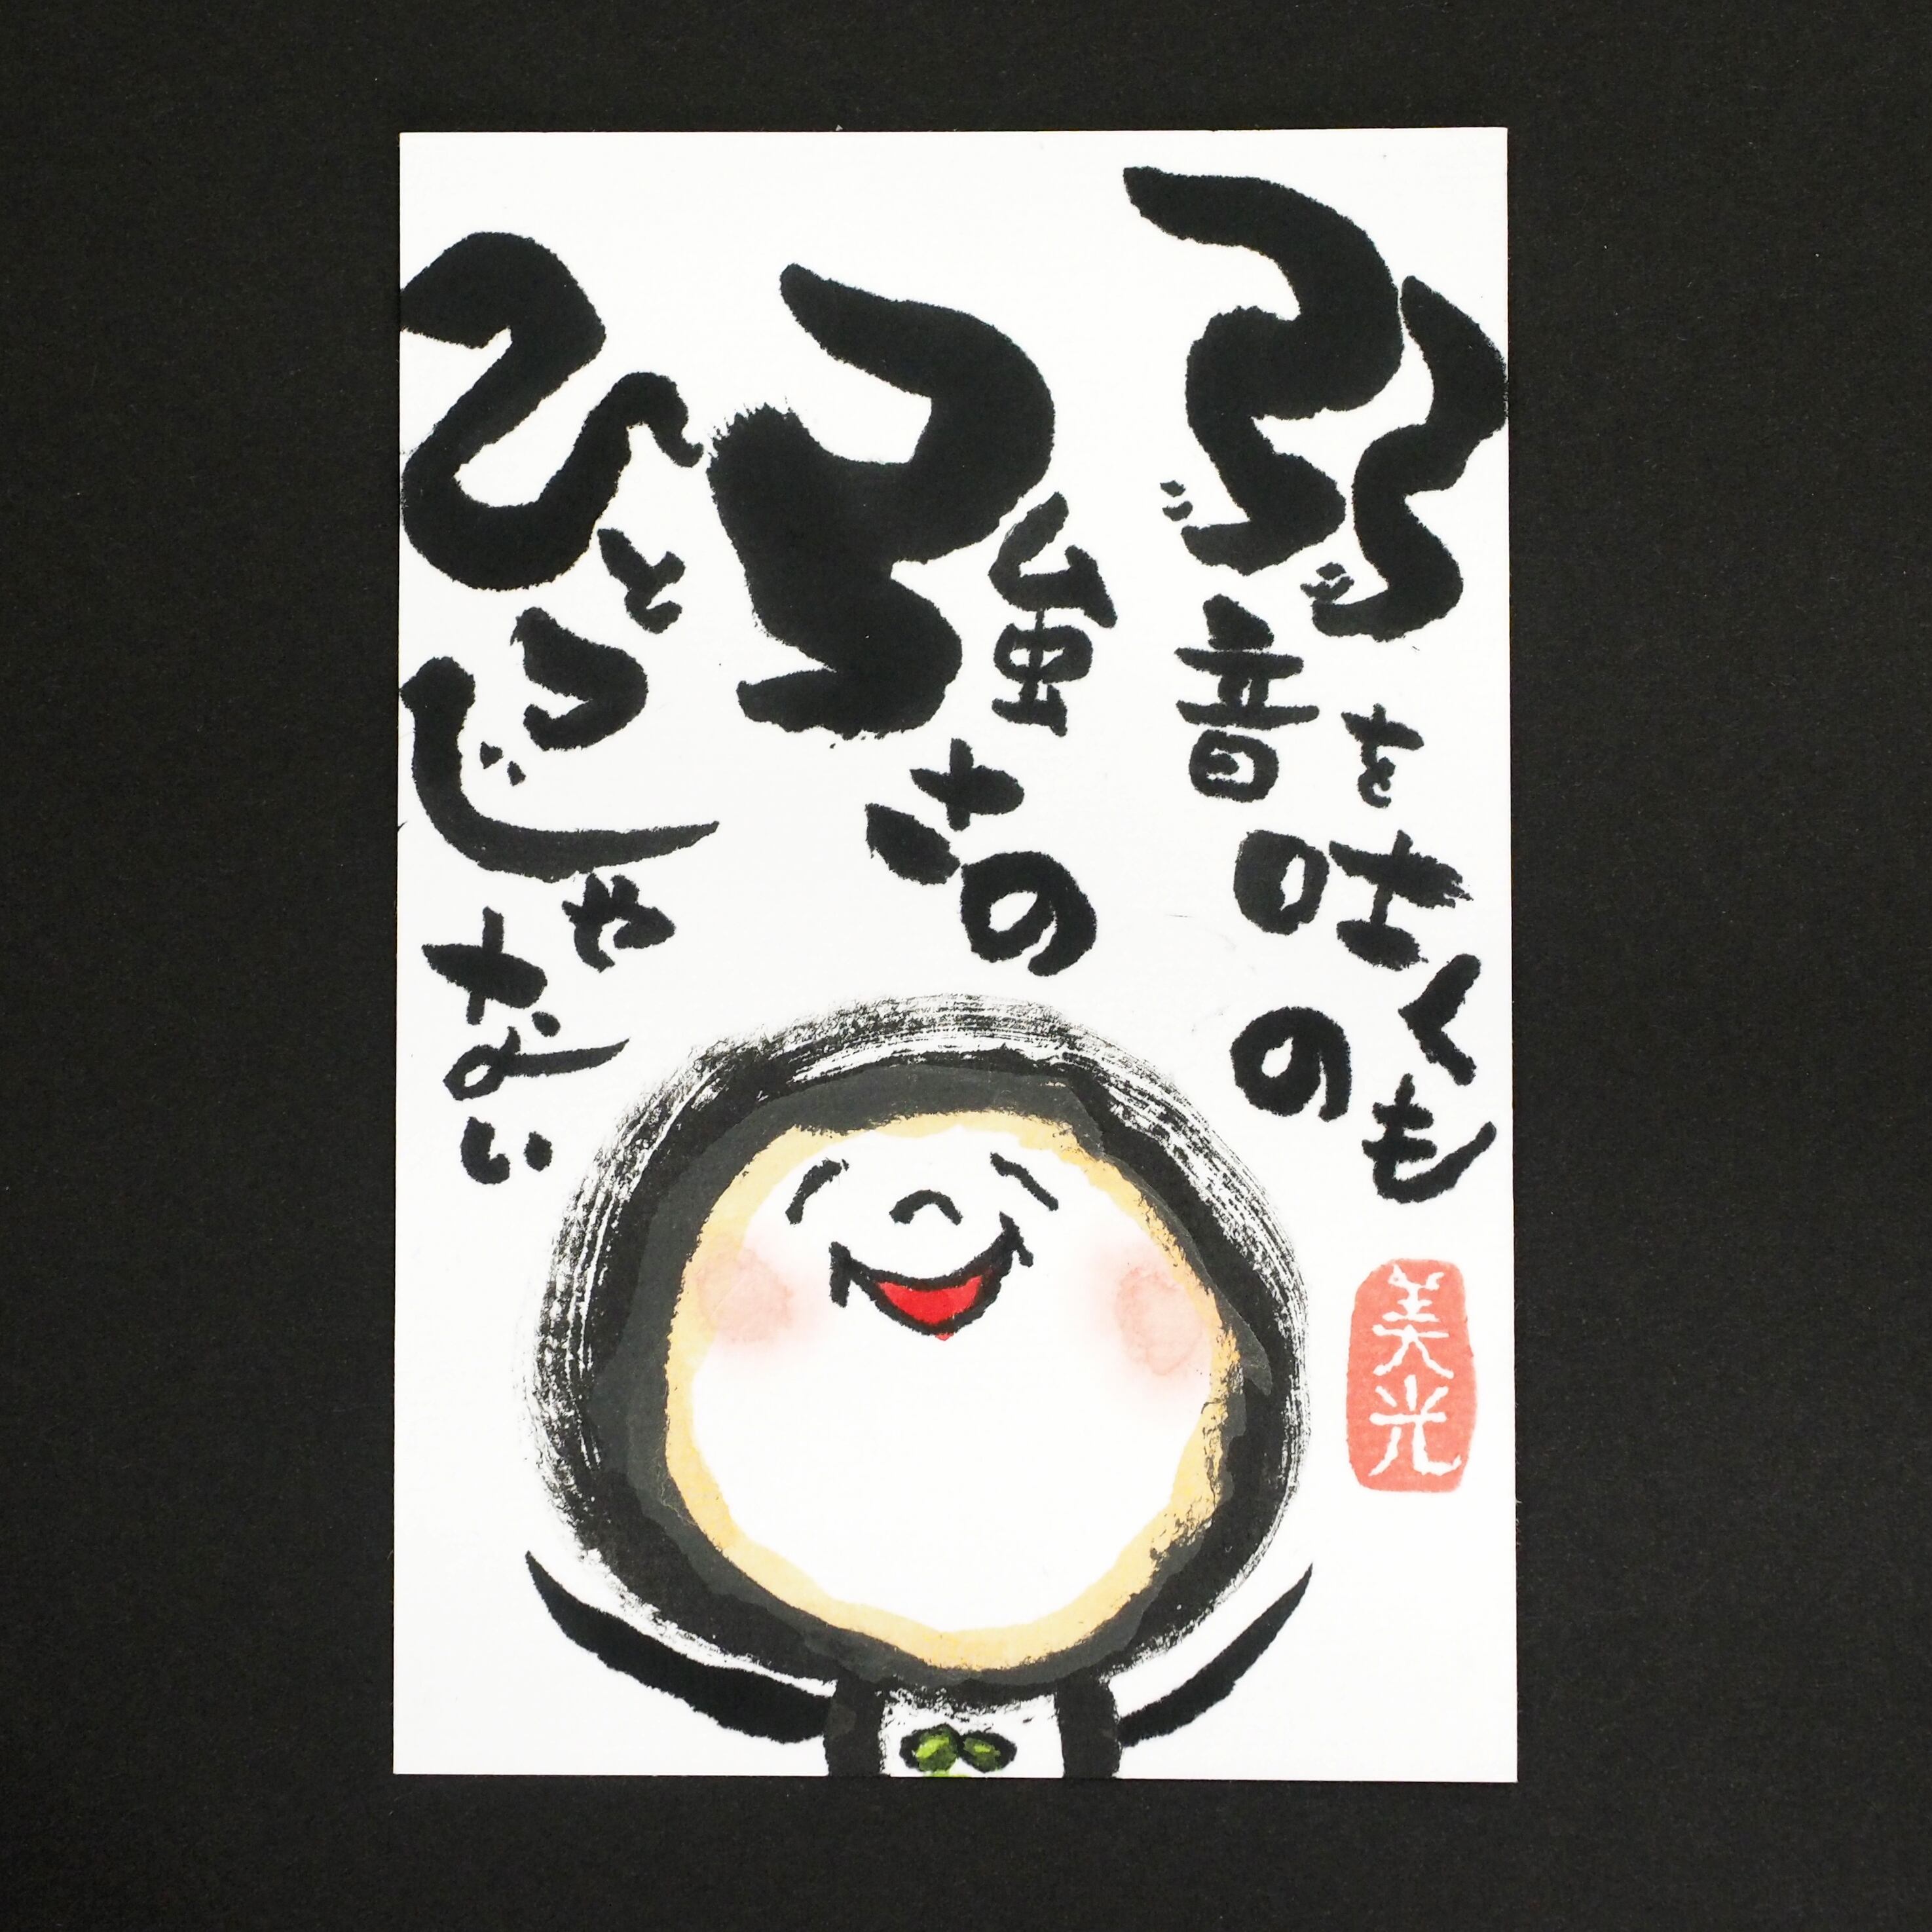 弱音を吐くのも
強さの
ひとつじゃない
美光